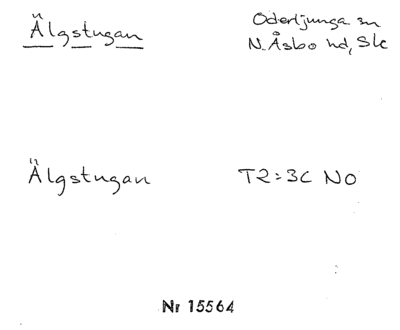 Älgstugan
Oderljunga sn
N. Åsbo hd, Sk
Älgstugan
T2:3C NO
Nr 15564